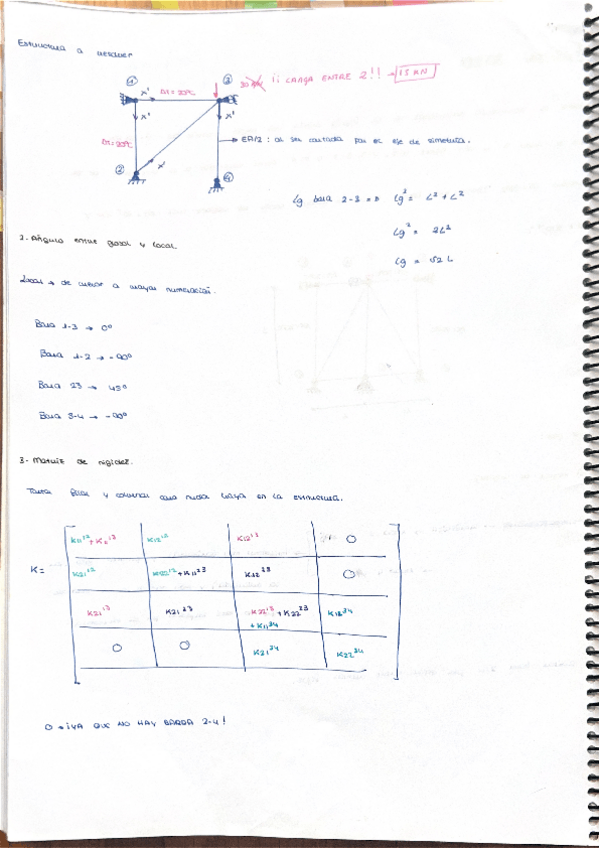 Estructura a resolver
① ③ 30 KN ¡¡ CARGA ENTRE 2!! → 15 KN
x' Δt = 20ºC
x' x'
Δt = 20ºC → EA/2 : al ser cortada por el eje de simetría.
② x' ④
Lg barra 2-3 => Lg² = L² + L²
Lg² = 2L²
Lg = √2 L
2. Ángulo entre global y local
Local → de menor a mayor numeración.
Barra 1-3 → 0º
Barra 1-2 → -90º
Barra 23 → 45º
Barra 3-4 → -90º
3- Matriz de rigidez.
Tantas filas y columnas como nudos haya en la estructura.
K11¹² + K11¹³ K12¹² K12¹³ 0
K= K21¹² K22¹² + K11²³ K12²³ 0
K21¹³ K21²³ K22¹³ + K22²³ K12³⁴
+ K11³⁴
0 0 K21³⁴ K22³⁴
0 → ¡YA QUE NO HAY BARRA 2-4!